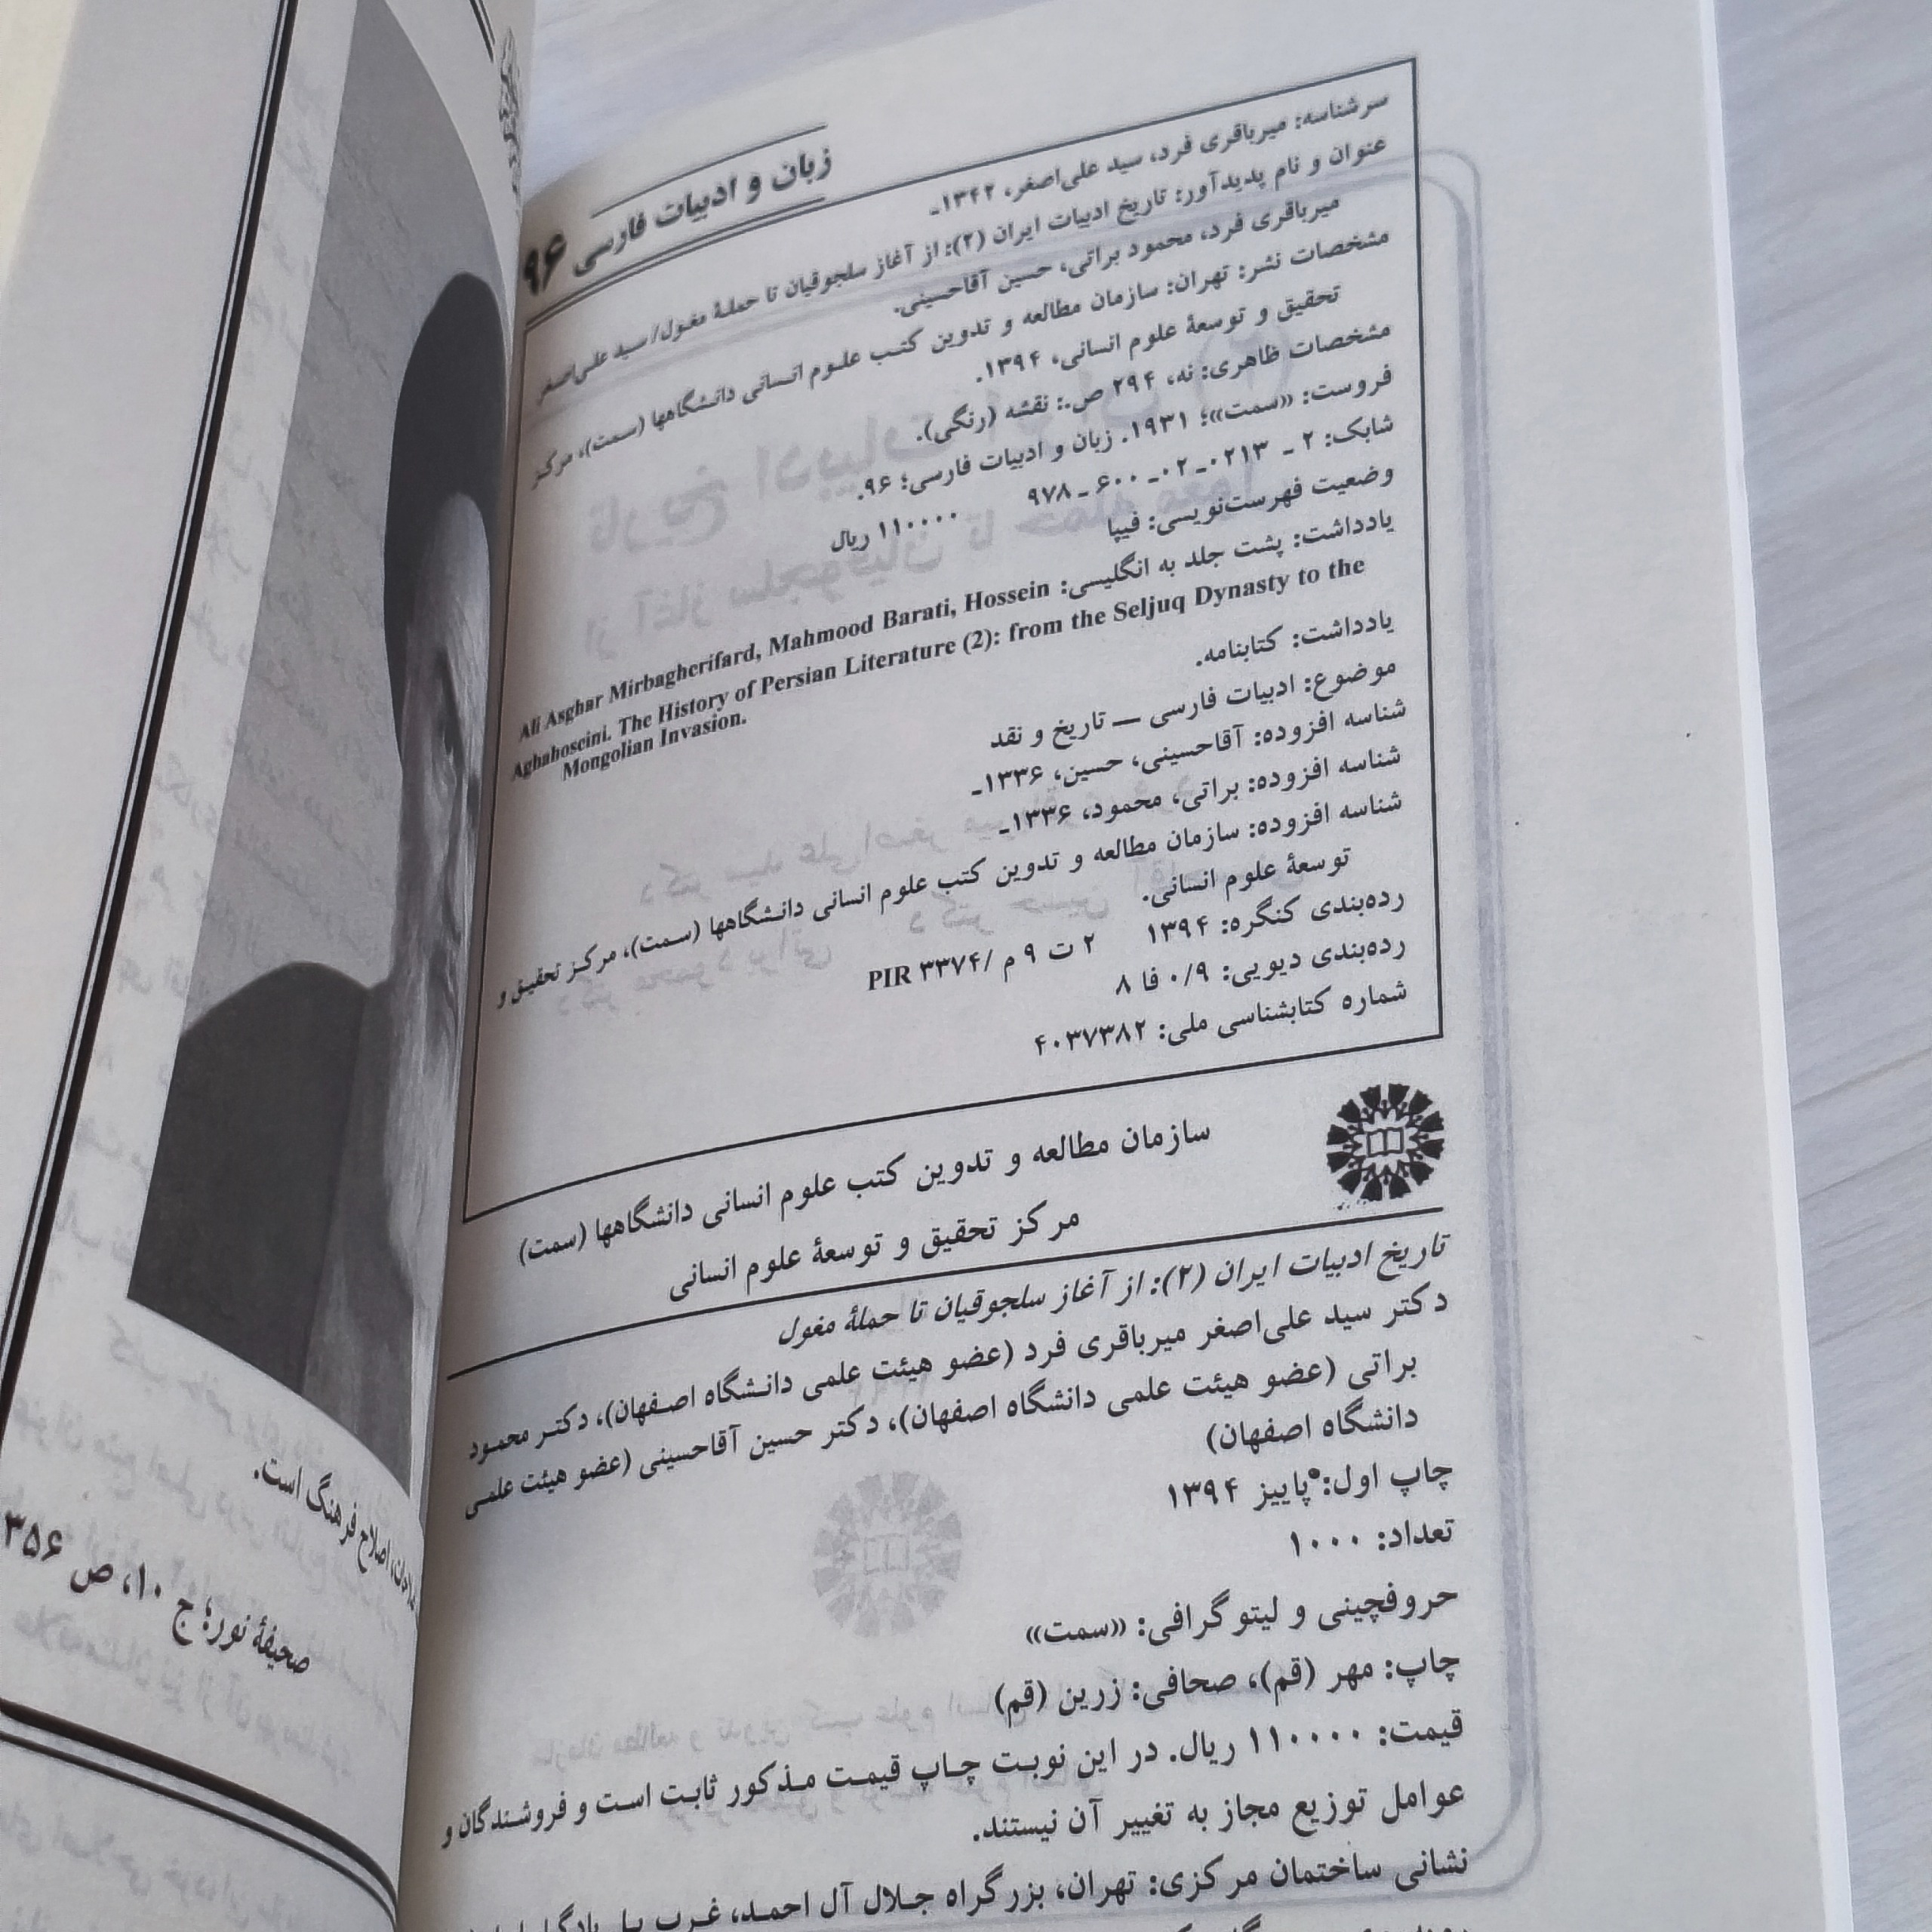 زبان و ادبیات فارسی ۹۶
سرشناسه: میرباقری فرد، سید علی‌اصغر، ۱۳۴۲ـ
عنوان و نام پدیدآور: تاریخ ادبیات ایران (۲): از آغاز سلجوقیان تا حملهٔ مغول/ سید علی‌اصغر
میرباقری فرد، محمود براتی، حسین آقاحسینی.
مشخصات نشر: تهران: سازمان مطالعه و تدوین کتب علوم انسانی دانشگاهها (سمت)، مرکز
تحقیق و توسعهٔ علوم انسانی، ۱۳۹۴.
مشخصات ظاهری: نه، ۲۹۴ ص.: نقشه (رنگی).
فروست: «سمت»؛ ۱۹۳۱. زبان و ادبیات فارسی؛ ۹۶.
شابک: ۲ ـ ۰۲۱۳ـ ۰۲ـ ۶۰۰ ـ ۹۷۸ ۱۱۰۰۰۰ ریال
وضعیت فهرست‌نویسی: فیپا
یادداشت: پشت جلد به انگلیسی: Ali Asghar Mirbagherifard, Mahmood Barati, Hossein
Aghahoseini. The History of Persian Literature (2): from the Seljuq Dynasty to the
Mongolian Invasion.
یادداشت: کتابنامه.
موضوع: ادبیات فارسی — تاریخ و نقد
شناسه افزوده: آقاحسینی، حسین، ۱۳۳۶ـ
شناسه افزوده: براتی، محمود، ۱۳۳۶ـ
شناسه افزوده: سازمان مطالعه و تدوین کتب علوم انسانی دانشگاهها (سمت)، مرکز تحقیق و
توسعهٔ علوم انسانی.
رده‌بندی کنگره: ۱۳۹۴ ۲ ت ۹ م /PIR ۳۳۷۴
رده‌بندی دیویی: ۰/۹ فا ۸
شماره کتابشناسی ملی: ۴۰۳۷۳۸۲
سازمان مطالعه و تدوین کتب علوم انسانی دانشگاهها (سمت)
مرکز تحقیق و توسعهٔ علوم انسانی
تاریخ ادبیات ایران (۲): از آغاز سلجوقیان تا حملهٔ مغول
دکتر سید علی‌اصغر میرباقری فرد (عضو هیئت علمی دانشگاه اصفهان)، دکتر محمود
براتی (عضو هیئت علمی دانشگاه اصفهان)، دکتر حسین آقاحسینی (عضو هیئت علمی
دانشگاه اصفهان)
چاپ اول: پاییز ۱۳۹۴
تعداد: ۱۰۰۰
حروفچینی و لیتوگرافی: «سمت»
چاپ: مهر (قم)، صحافی: زرین (قم)
قیمت: ۱۱۰۰۰۰ ریال. در این نوبت چاپ قیمت مذکور ثابت است و فروشندگان و
عوامل توزیع مجاز به تغییر آن نیستند.
نشانی ساختمان مرکزی: تهران، بزرگراه جلال آل احمد، غرب پل
اصلاح فرهنگ است.
صحیفهٔ نور؛ ج ۱۰، ص ۳۵۶